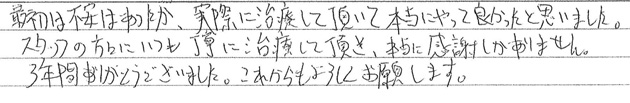 最初は不安はあったが、実際に治療して頂いて本当にやって良かったと思いました。
スタッフの方もいつも丁寧に治療して頂き、本当に感謝しかありません。
3年間ありがとうございました。これからもよろしくお願いします。